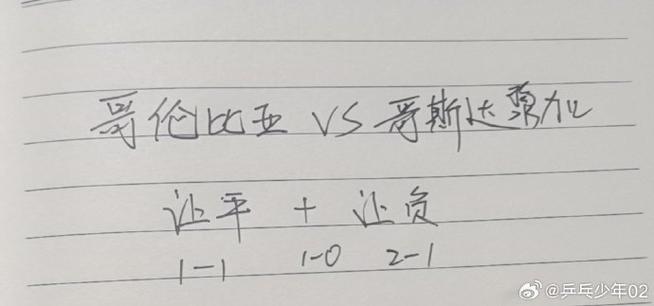 哥伦比亚 VS 哥斯达黎加
让平 + 让负
1-1 1-0 2-1
@乒乓少年02